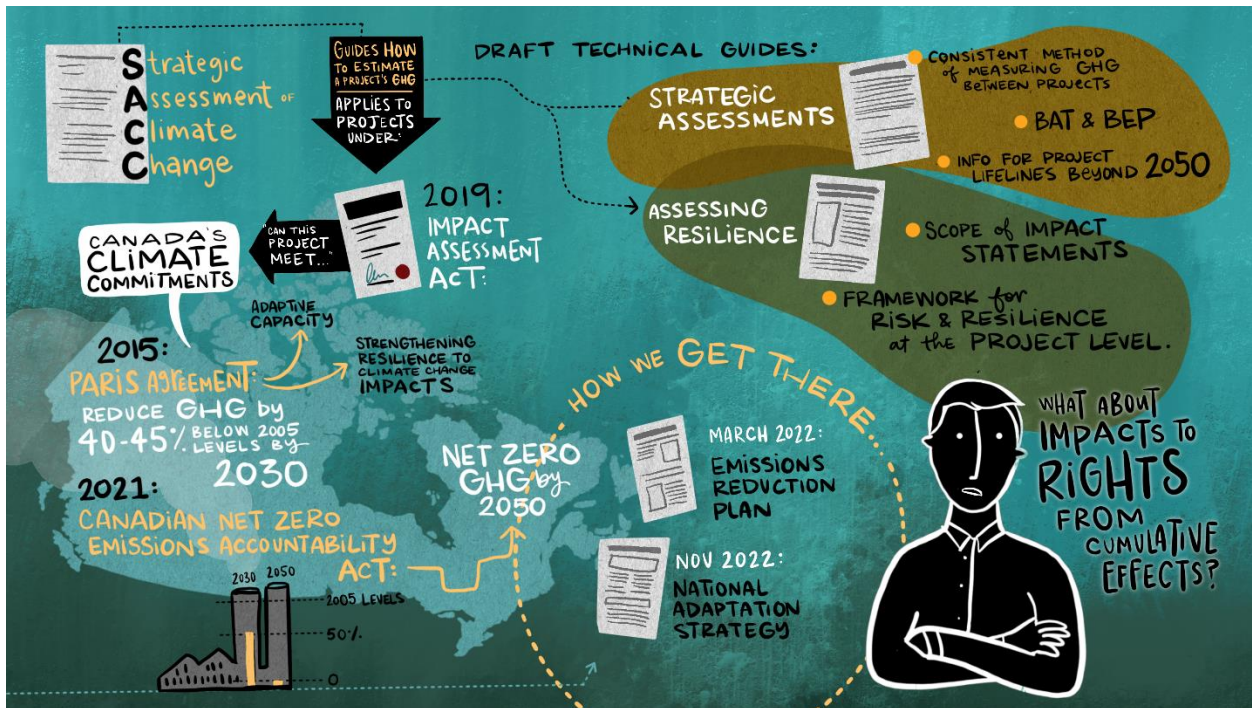 Strategic
Assessment OF
Climate
Change
GUIDES HOW
TO ESTIMATE
A PROJECT'S GHG
APPLIES TO
PROJECTS
UNDER:
2019:
IMPACT
ASSESSMENT
ACT:
"CAN THIS
PROJECT
MEET..."
CANADA'S
CLIMATE
COMMITMENTS
2015:
PARIS AGREEMENT:
REDUCE GHG by
40-45% BELOW 2005
LEVELS BY
2030
ADAPTIVE
CAPACITY
STRENGTHENING
RESILIENCE TO
CLIMATE CHANGE
IMPACTS
2021:
CANADIAN NET ZERO
EMISSIONS ACCOUNTABILITY
ACT:
NET ZERO
GHG by
2050
2030 2050
2005 LEVELS
50%
0
DRAFT TECHNICAL GUIDES:
STRATEGIC
ASSESSMENTS
CONSISTENT METHOD
of MEASURING GHG
BETWEEN PROJECTS
BAT & BEP
INFO FOR PROJECT
LIFELINES BEYOND 2050
ASSESSING
RESILIENCE
SCOPE of IMPACT
STATEMENTS
FRAMEWORK for
RISK & RESILIENCE
at the PROJECT LEVEL.
HOW WE GET THERE...
MARCH 2022:
EMISSIONS
REDUCTION
PLAN
NOV 2022:
NATIONAL
ADAPTATION
STRATEGY
WHAT ABOUT
IMPACTS TO
RIGHTS
FROM
CUMULATIVE
EFFECTS?